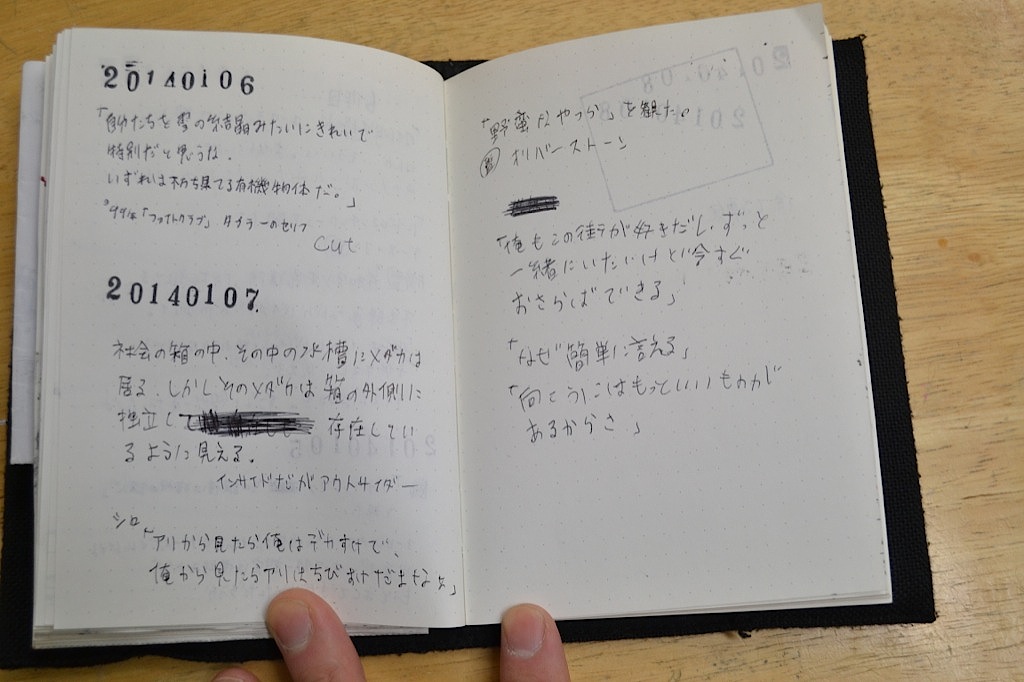 20140106
「自分たちを雪の結晶みたいにきれいで
特別だと思うな.
いずれは朽ち果てる有機物体だ。」
'99年「ファイトクラブ」タイラーのセリフ
cut
20140107.
社会の箱の中、その中の水槽にメダカは
居る。しかしそのメダカは箱の外側に
独立して 存在してい
るように見える.
インサイドだがアウトサイダー
シロ
「アリから見たら俺はデカすけで、
俺から見たらアリはちびすけだませなよ」
「野蛮なやつら」を観た。
監 オリバーストーン
「俺もこの街が好きだしずっと
一緒にいたいけど今すぐ
おさらばできる」
「なぜ簡単に言える」
「向こうにはもっといいものが
あるからさ.」